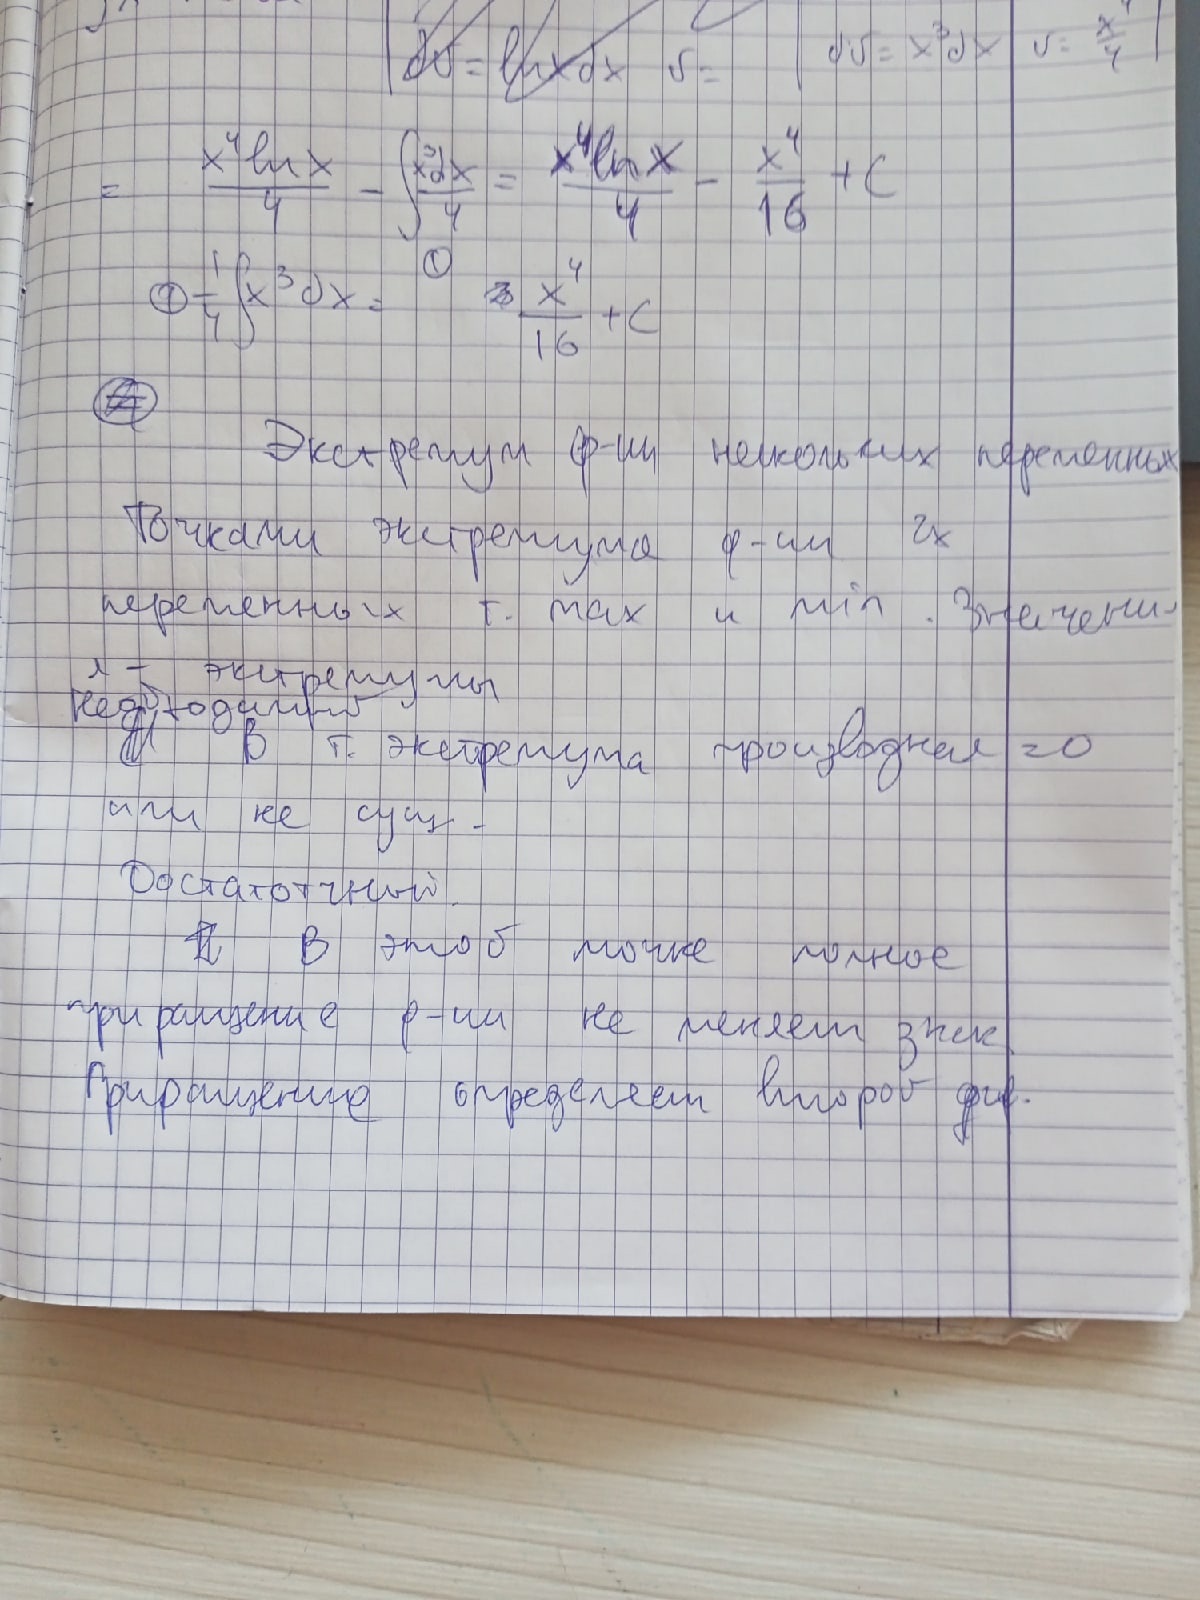 dv = ln x dx v = | dv = x³dx v = x⁴/4 |
= x⁴ ln x / 4 - ∫ x³dx / 4 = x⁴ ln x / 4 - x⁴/16 + C
①
① 1/4 ∫ x³dx = x⁴/16 + C
Экстремум ф-ии нескольких переменных
Точками экстремума ф-ии 2х
переменных т. max и min. Значени-
я - экстремумы
Необходимый
В т. экстремума производная = 0
или не сущ.
Достаточный
В этой точке полное
приращение ф-ии не меняет знак.
Приращение определяет второй